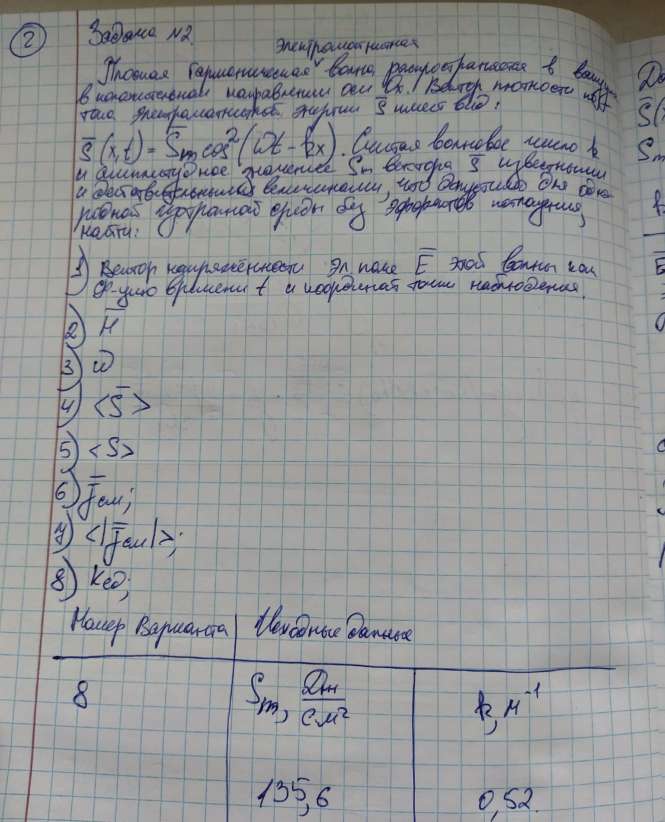 2
Задача №2.
Электромагнитная
Плоская гармоническая волна распространяется в вакууме
в положительном направлении оси Ox. Вектор плотности по-
тока электромагнитной энергии S̄ имеет вид:
S̄(x,t) = S̄m cos²(ωt - kx). Считая волновое число k
и амплитудное значение Sm вектора S̄ известными
и действительными величинами, что допустимо для одно-
родной изотропной среды без эффектов поглощения,
найти:
1) Вектор напряжённости эл. поля Ē этой волны как
ф-цию времени t и координат точки наблюдения.
2) H̄
3) ω
4) <S̄>
5) <S>
6) j̄см;
7) <|j̄см|>;
8) Kед;
Номер Варианта Исходные данные
8 Sm, Дж/см² k, м⁻¹
135,6 0,52.
До
S̄(
Sm
k
Ē